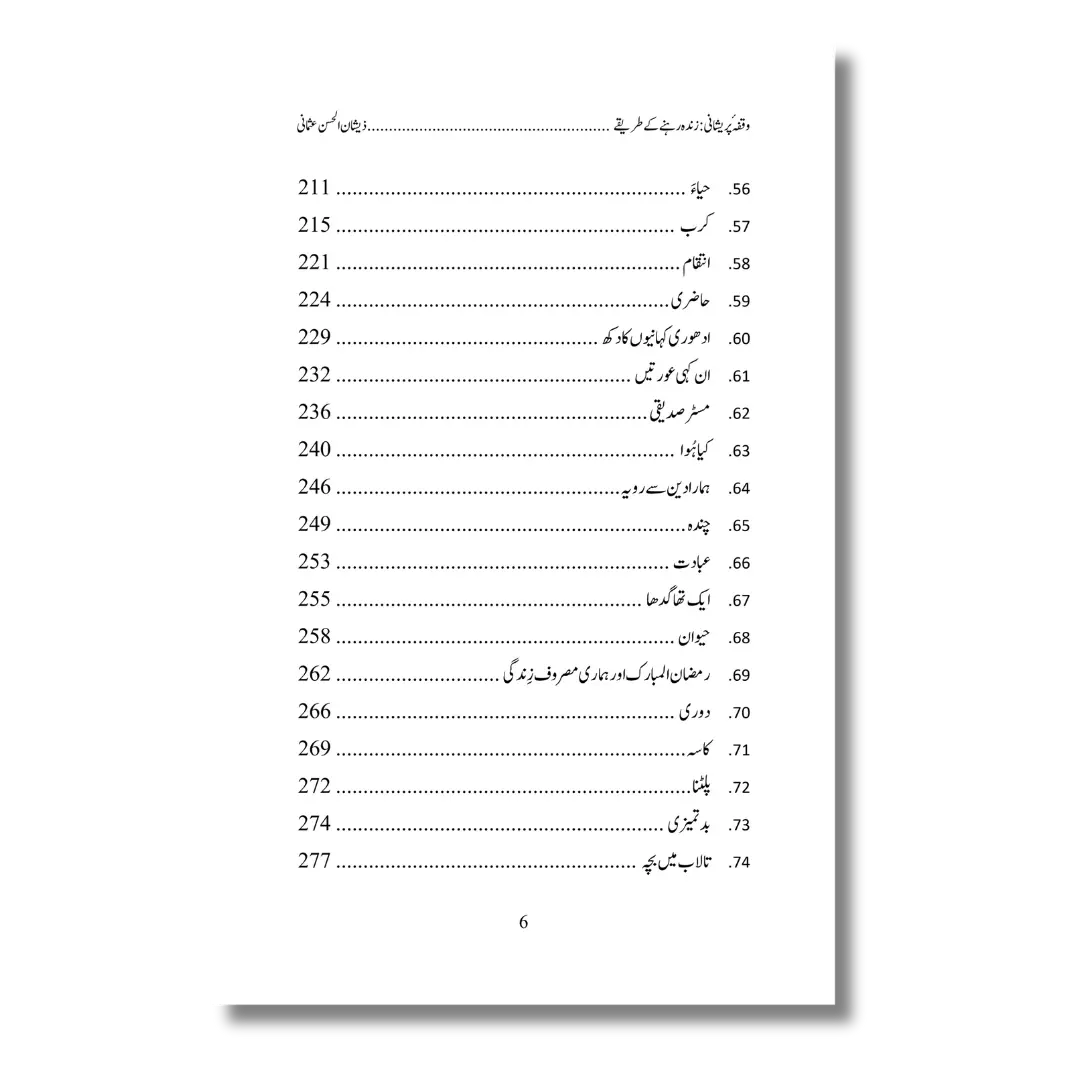 وقفۂ پریشانی: زندہ رہنے کے طریقے ........................................................ ذیشان الحسن عثمانی
56. حیاءَ ................................................................ 211
57. کرب .............................................................. 215
58. انتقام ............................................................... 221
59. حاضری ............................................................. 224
60. ادھوری کہانیوں کا دکھ ................................................ 229
61. ان کہی عورتیں ...................................................... 232
62. مسٹر صدیقی ......................................................... 236
63. کیا ہُوا .............................................................. 240
64. ہمارا دین سے رویہ .................................................... 246
65. چندہ ................................................................ 249
66. عبادت ............................................................. 253
67. ایک تھا گدھا ........................................................ 255
68. حیوان .............................................................. 258
69. رمضان المبارک اور ہماری مصروف زِندگی .............................. 262
70. دوری .............................................................. 266
71. کاسہ ................................................................ 269
72. پلٹنا ................................................................. 272
73. بدتمیزی ............................................................ 274
74. تالاب میں بچہ ....................................................... 277
6